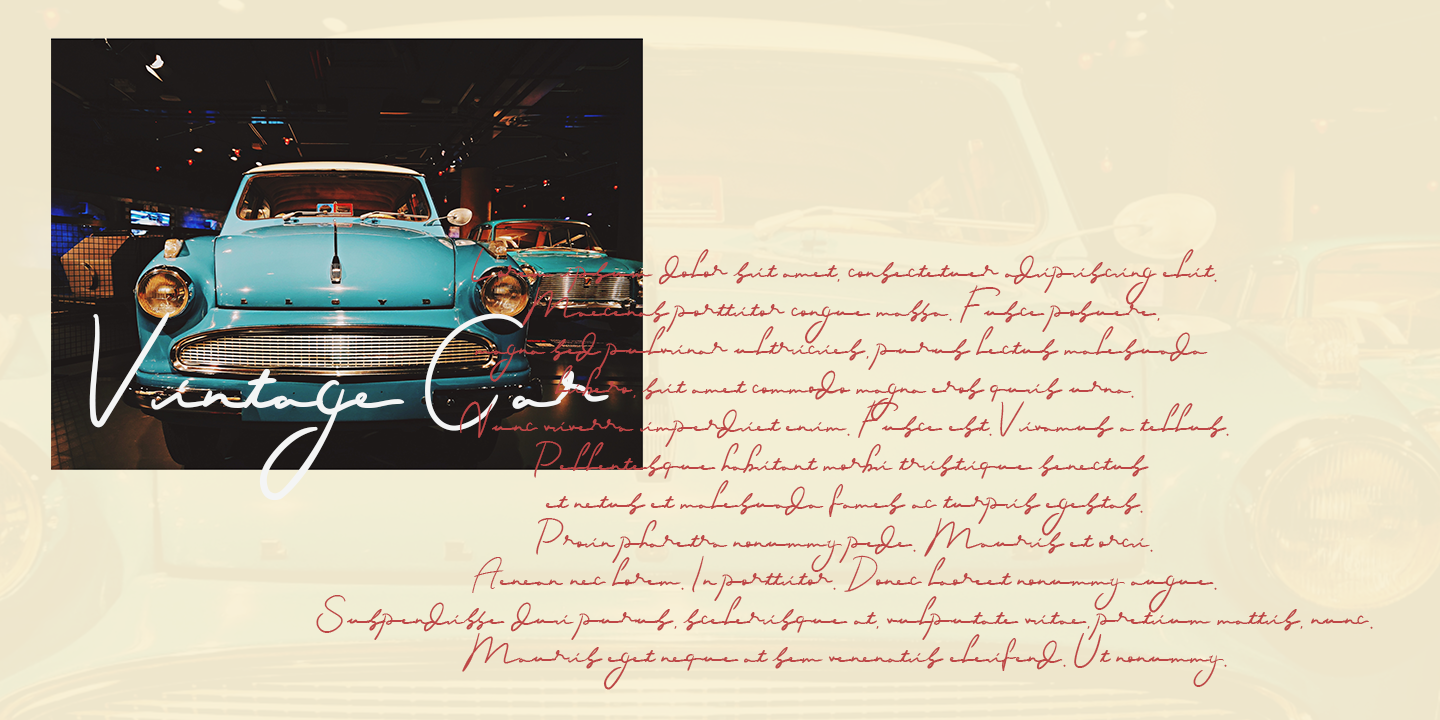 Vintage Car
Lorem ipsum dolor sit amet, consectetuer adipiscing elit.
Maecenas porttitor congue massa. Fusce posuere,
magna sed pulvinar ultricies, purus lectus malesuada
libero, sit amet commodo magna eros quis urna.
Nunc viverra imperdiet enim. Fusce est. Vivamus a tellus.
Pellentesque habitant morbi tristique senectus
et netus et malesuada fames ac turpis egestas.
Proin pharetra nonummy pede. Mauris et orci.
Aenean nec lorem. In porttitor. Donec laoreet nonummy augue.
Suspendisse dui purus, scelerisque at, vulputate vitae, pretium mattis, nunc.
Mauris eget neque at sem venenatis eleifend. Ut nonummy.